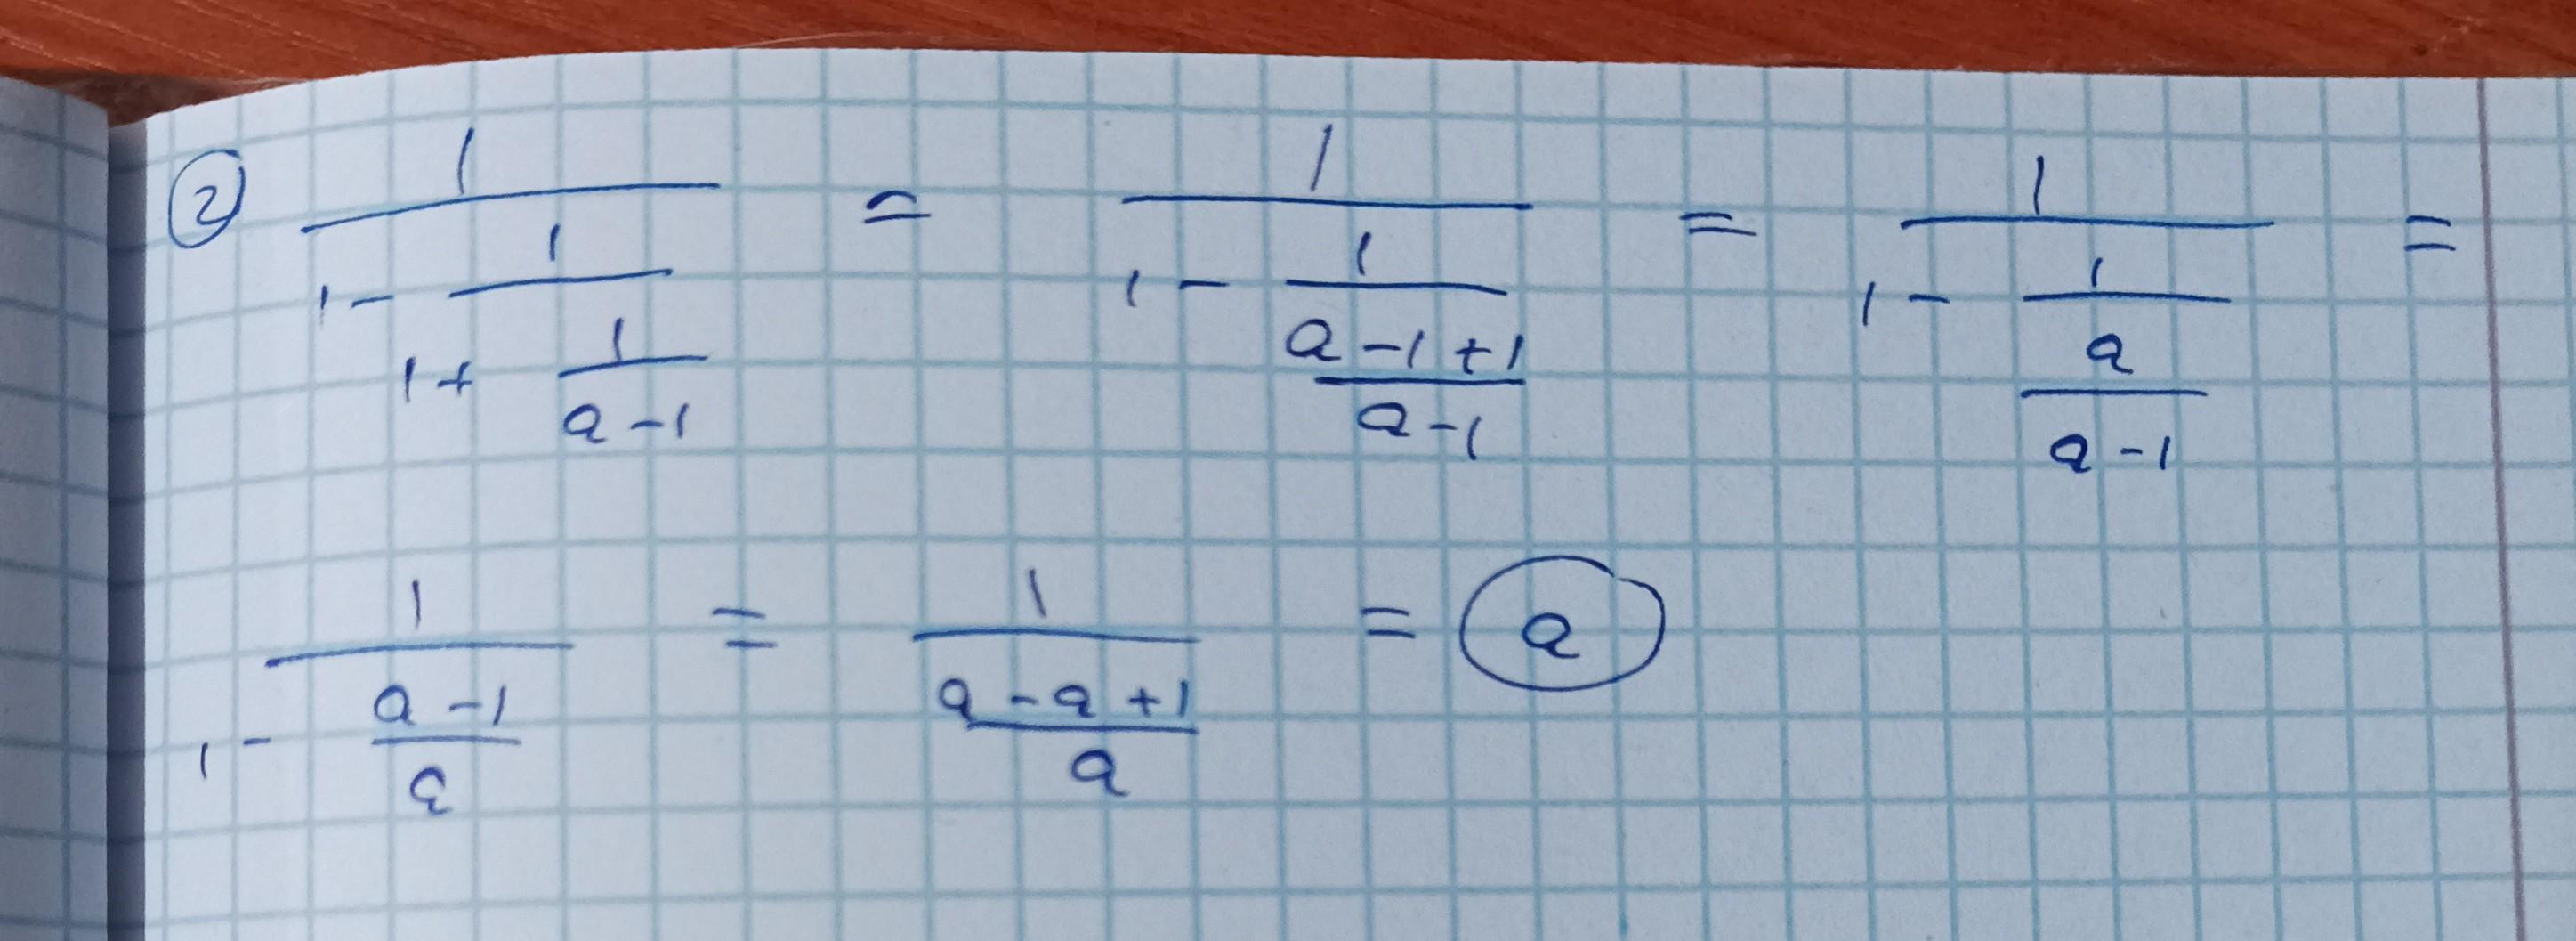 ② 1/(1 - 1/(1 + 1/(a-1))) = 1/(1 - 1/((a-1+1)/(a-1))) = 1/(1 - 1/(a/(a-1))) =
1/(1 - (a-1)/a) = 1/((a-a+1)/a) = a